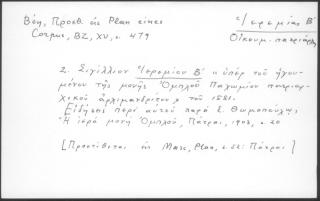 Βέη, Προσθ. εἰς Plan eines
Corpus, BZ, XV, σ. 479
Ἱερεμίας Β΄
Οἰκουμ. πατριάρχης
2. Σιγίλλιον Ἱερεμίου Β΄ "ὑπὲρ τοῦ ἡγου-
μένου τῆς μονῆς Ὀμπλοῦ Παχωμίου πατριαρ-
χικοῦ ἀρχιμανδρίτου" τοῦ 1581.
Εἰδήσεις περὶ αὐτοῦ παρὰ Σ. Θωμοπούλῳ,
Ἡ ἱερὰ μονὴ Ὀμπλοῦ, Πάτραι, 1903, σ. 20
[Προστίθεται εἰς Marc, Plan, σ. : Πάτραι]